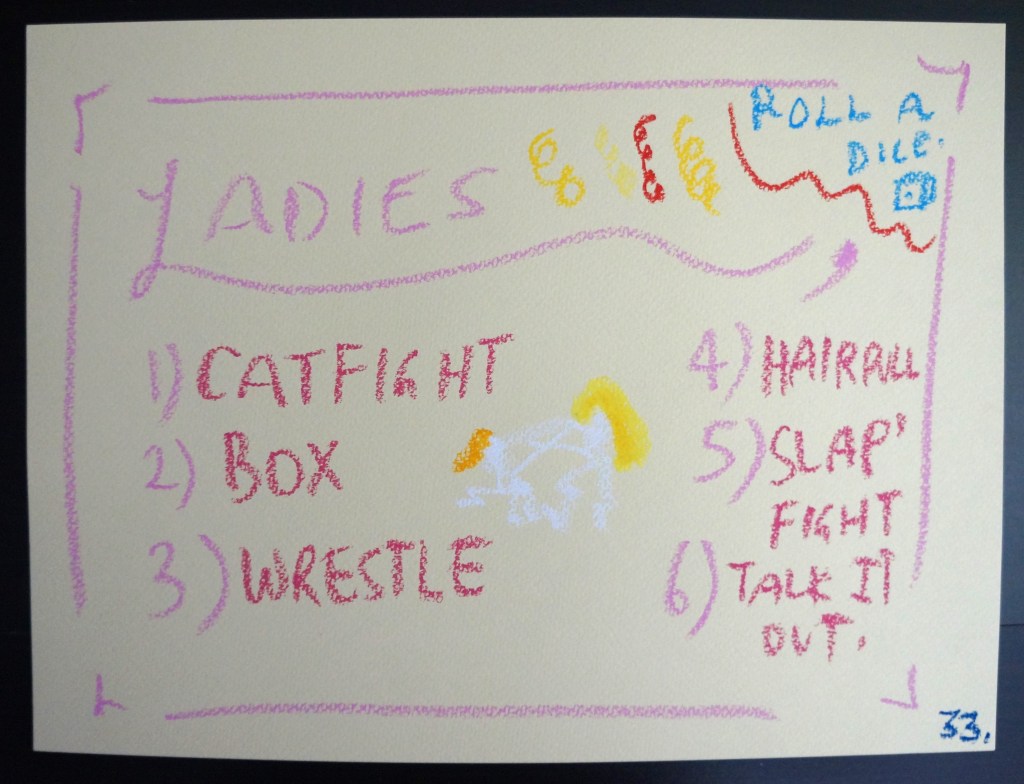 LADIES,
ROLL A
DICE.
1) CATFIGHT
2) BOX
3) WRESTLE
4) HAIRPULL
5) SLAP'
FIGHT
6) TALK IT
OUT.
33.